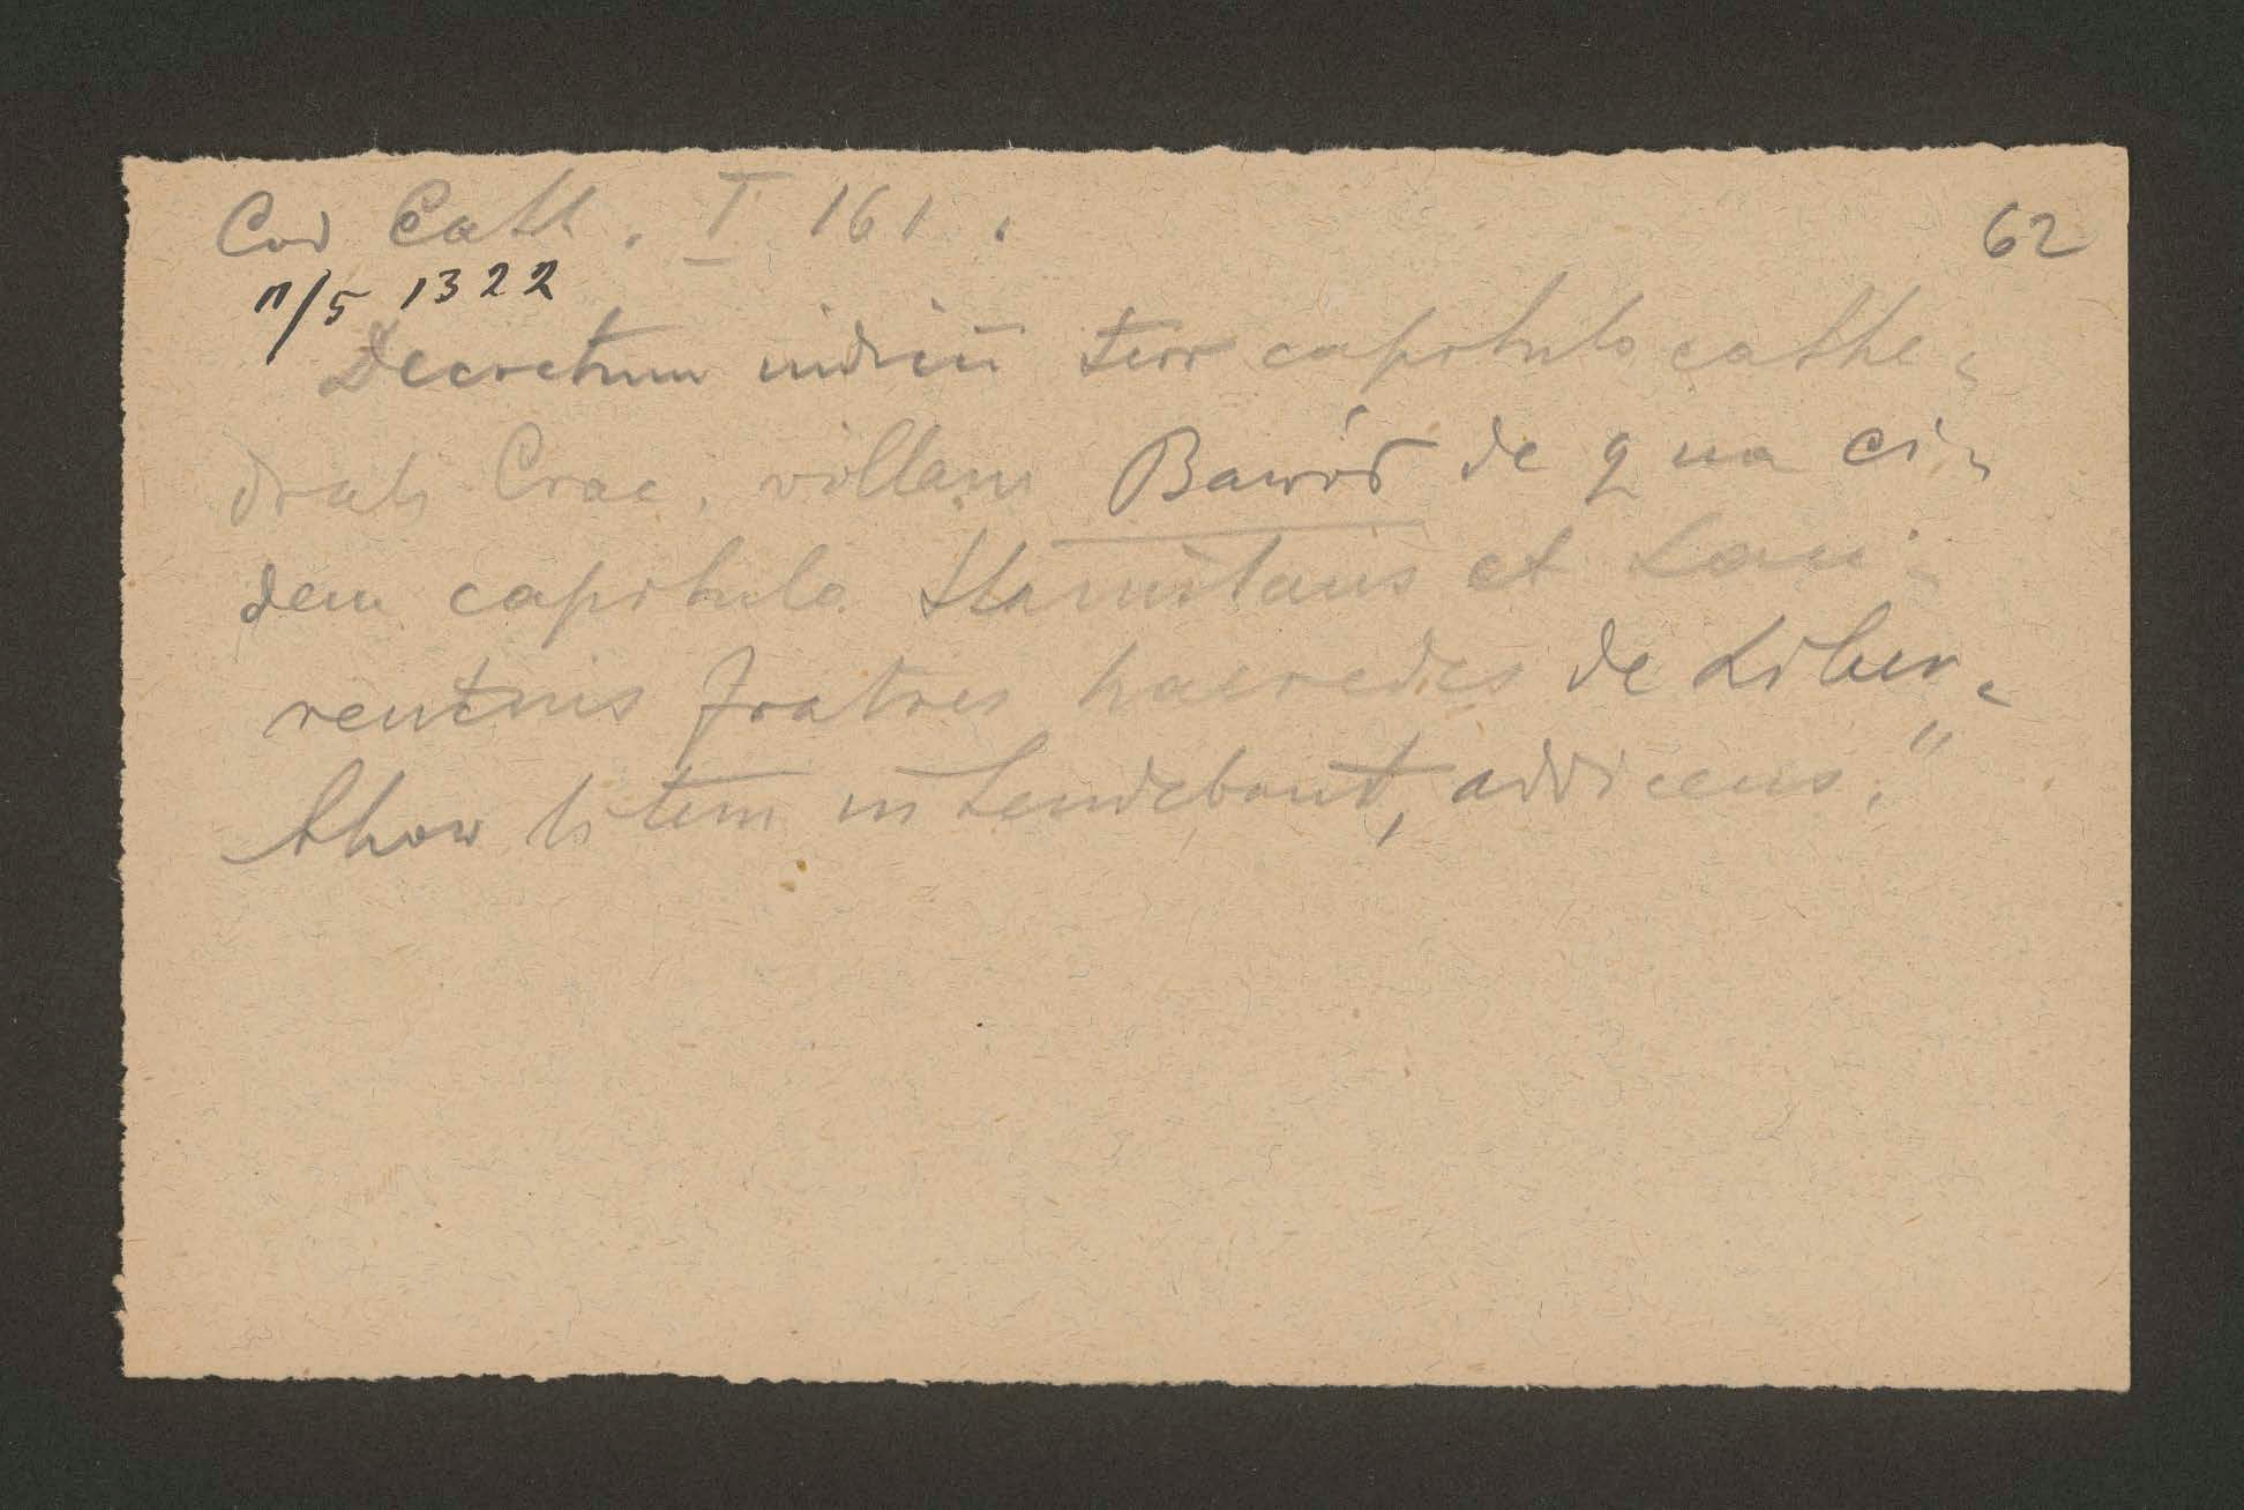 Cod Cath. I 161.
62
11/5 1322
Decretum iudicii terr capitulo cathe-
drali Crac. villam Bawół de qua ei-
dem capitulo Stanislaus et Lau-
rentius fratres haeredes de Liber-
thow litem intendebant, addicens."